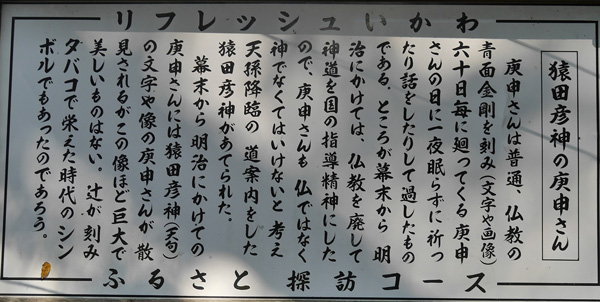 リフレッシュいかわ
猿田彦神の庚申さん
庚申さんは普通、仏教の
青面金剛を刻み(文字や画像)
六十日毎に廻ってくる庚申
さんの日に一夜眠らずに祈っ
たり話をしたりして過したもの
である。ところが幕末から 明
治にかけては、仏教を廃して
神道を国の指導精神にした
ので、庚申さんも 仏ではなく
神でなくてはいけないと 考え
天孫降臨の 道案内をした
猿田彦神があてられた。
幕末から 明治にかけての
庚申さんには猿田彦神(天句)
の文字や像の庚申さんが 散
見されるがこの像ほど巨大で
美しいものはない。辻が刻み
タバコで栄えた時代のシン
ボルでもあったのであろう。
ふるさと探訪コース